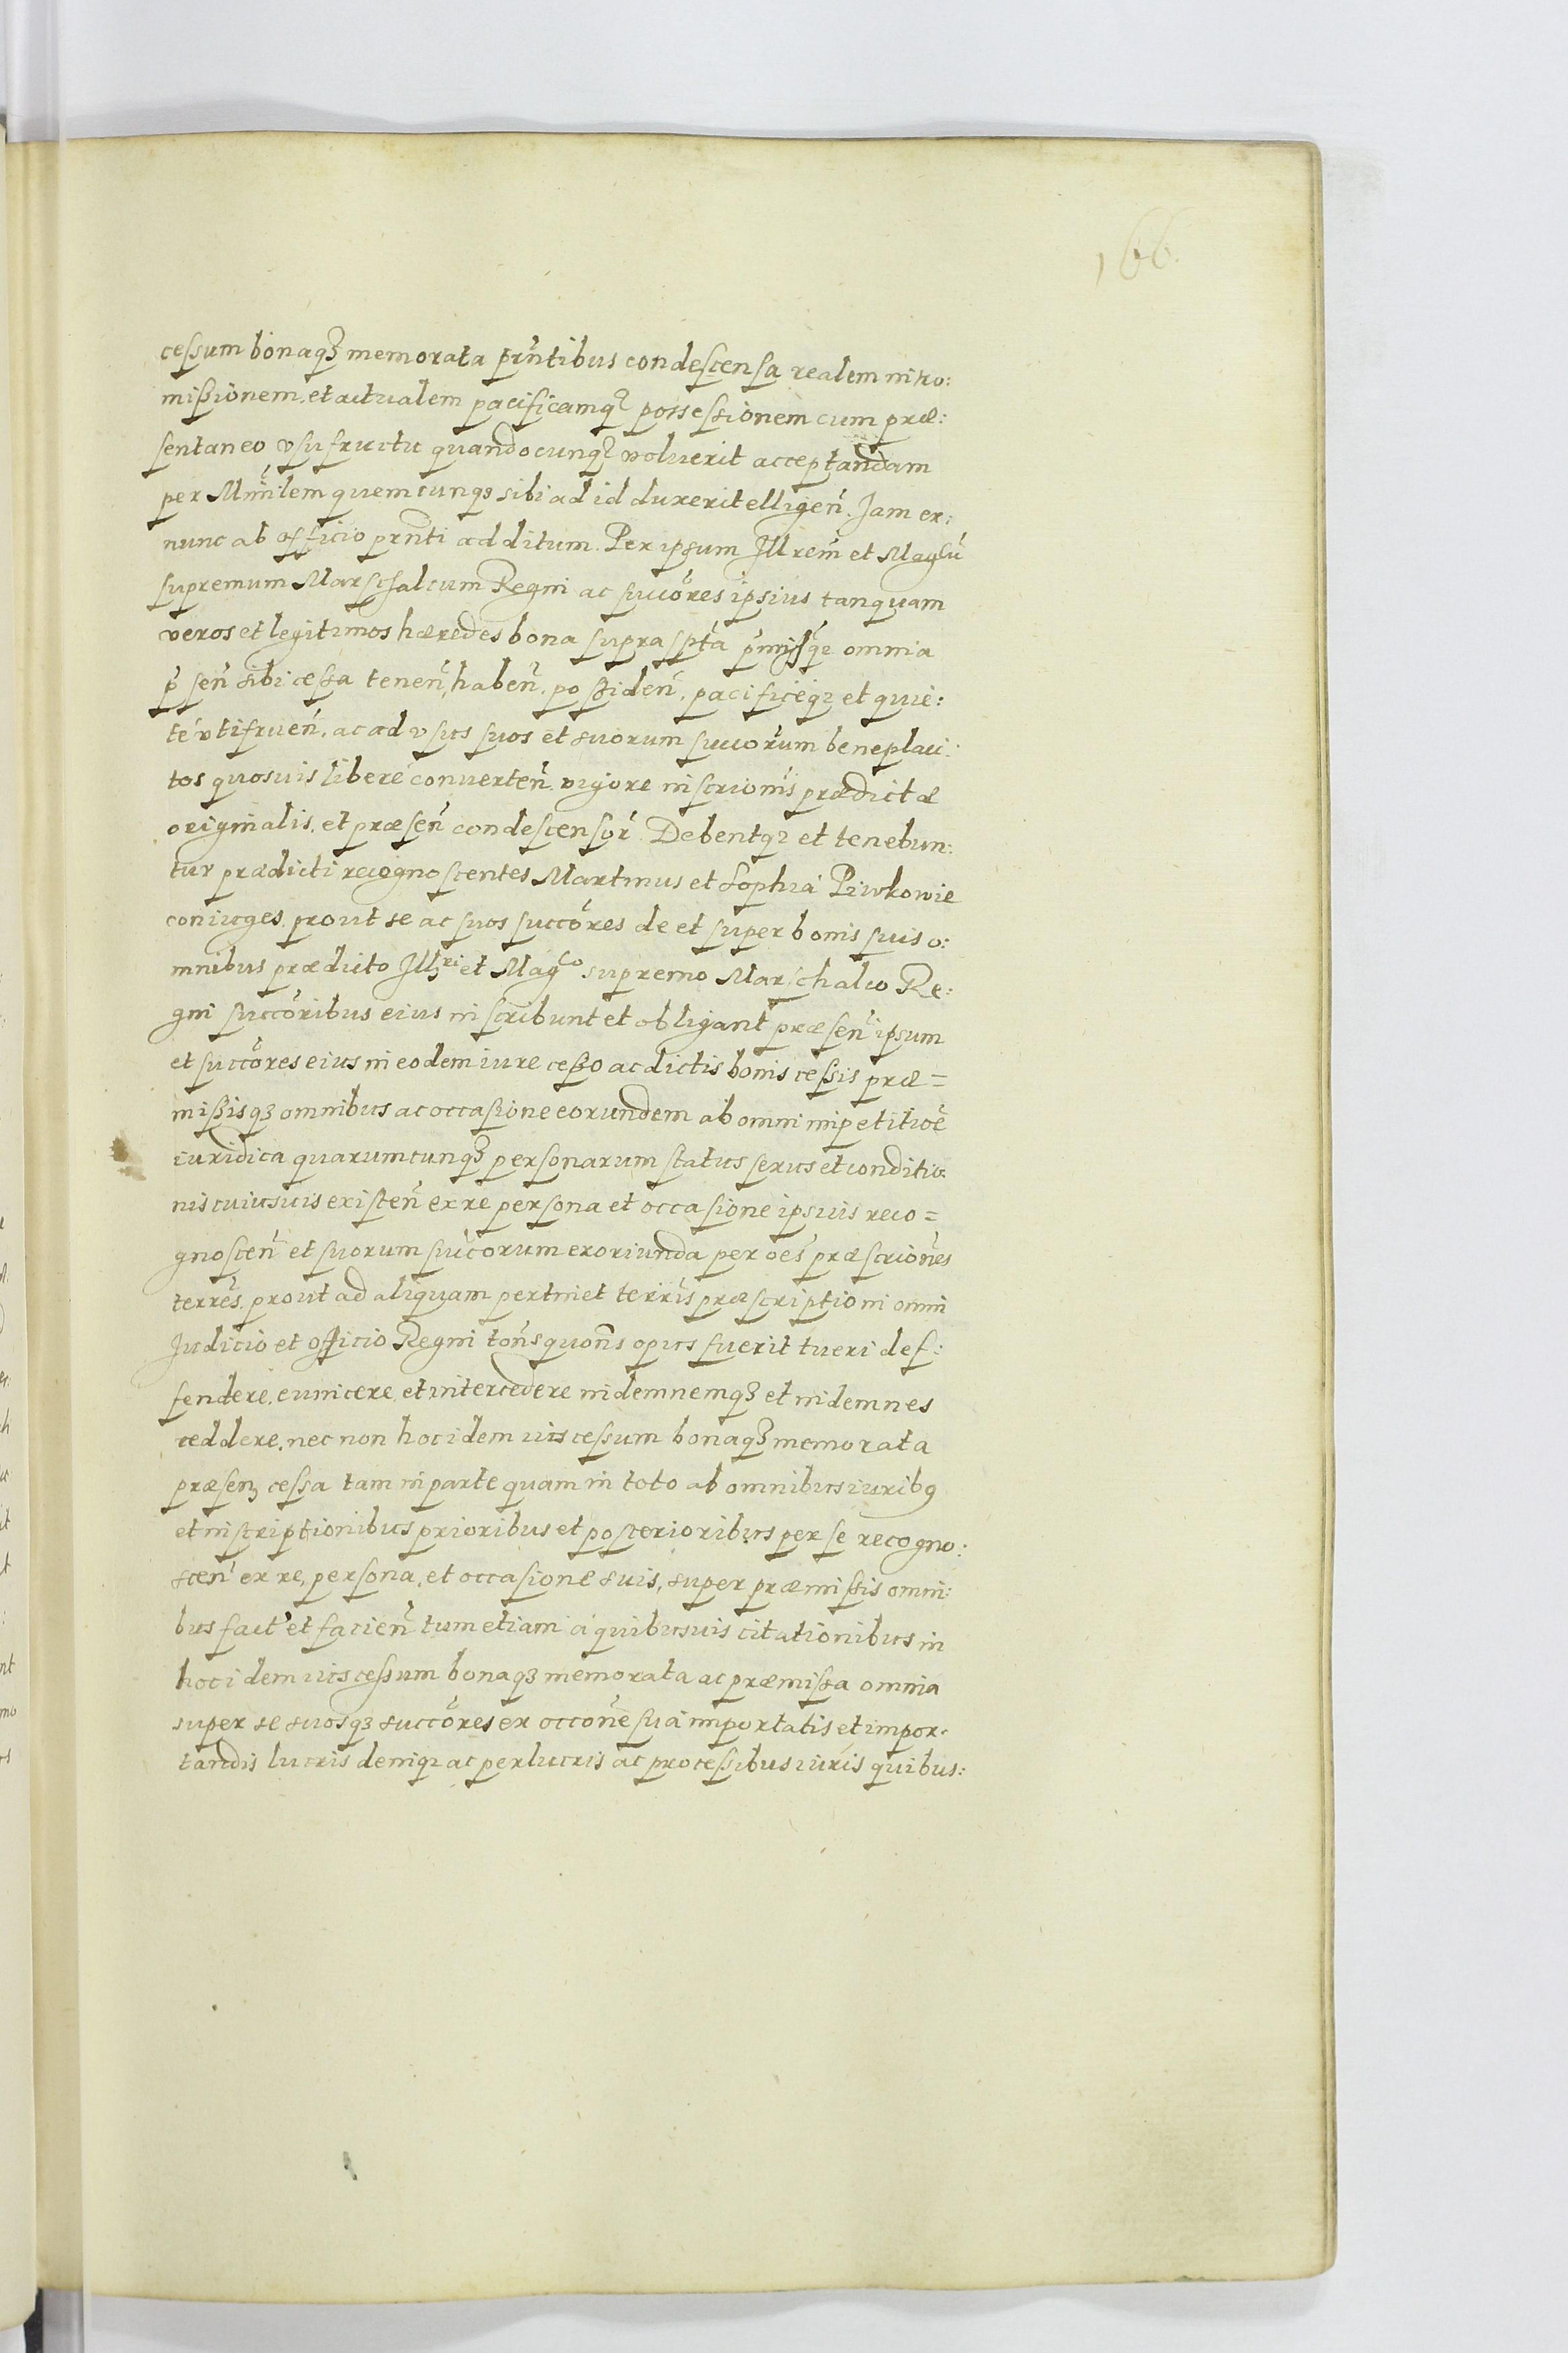 166.
ceſsum bonaqꝫ memorata pr̃ntibus condeſcenſa realem intro:
miſsionem, et actualem pacificamqꝫ posseſsionem cum præ:
ſentaneo vſufructu quandocunqꝫ voluerit acceptandam
per Minr̃ilem quemcunqꝫ sibi ad id duxerit elligen̄. Jam ex:
nunc ab officio pr̃nti additum. Per ipsum Jllrem̄ et Magcū
ſupremum Marſchalcum Regni ac ſuccōres ipsius tanquam
veros et legitimos hæredes bona ſupra ſptā p̄miſsaqꝫ omnia
p̄ſen̄ sibi ceſsa tenen̄, haben̄, poſsiden̄, pacificeqꝫ et quie:
té vtifruen̄, ac ad vſus ſuos et suorum ſuccōrum beneplaci:
tos quosuis liberé conuerten̄ vigore inſcriōnis prædictæ
originalis, et præſen̄ condeſcenſor̄. Debentqꝫ et tenebun:
tur prædicti recognoſcentes Martinus et Sophiá Piwkowie
coniuges, prout se ac ſuos ſuccōres de et ſuper bonis ſuis o:
mnibus prædicto Jllri et Magco supremo Marſchalco Re:
gni ſuccōribus eius inſcribunt et obligant præſen̄ ipsum
et ſuccōres eius in eodem iure ceſso ac dictis bonis ceſsis præ=
miſsisqꝫ omnibus ac occaſione eorundem ab omni impetitioē
iuridica quarumcunqꝫ perſonarum ſtatus ſexus et conditio
nis cuiusuis exiſten̄ ex re perſona et occaſione ipsius reco=
gnoſcen̄ et ſuorum ſuccorum exoriunda per oēs præſcriōnes
terrēs, prout ad aliquam pertinet terr̄is præſcriptioni omni
Judicio et officio Regni tōns quōns opus fuerit tueri def:
fendere, euincere, et intercedere indemnemqꝫ et indemnes
reddere, nec non hoc idem ius ceſsum bonaqꝫ memorata
præſenꝫ ceſsa tam in parte quam in toto ab omnibus iuribꝯ
et inſcriptionibus prioribus et poſterioribus per ſe recogno:
scen̄ ex re, perſona, et occaſione suis, super præmiſsis omni:
bus fact̄ et facien̄ tum etiam á quibusuis citationibus in
hoc idem ius ceſsum bonaqꝫ memorata ac præmiſsa omnia
super se suosqꝫ succōres ex occōne ſuá importatis et impor:
tandis lucris deniqꝫ ac perlucris ac proceſsibus iuris quibus: